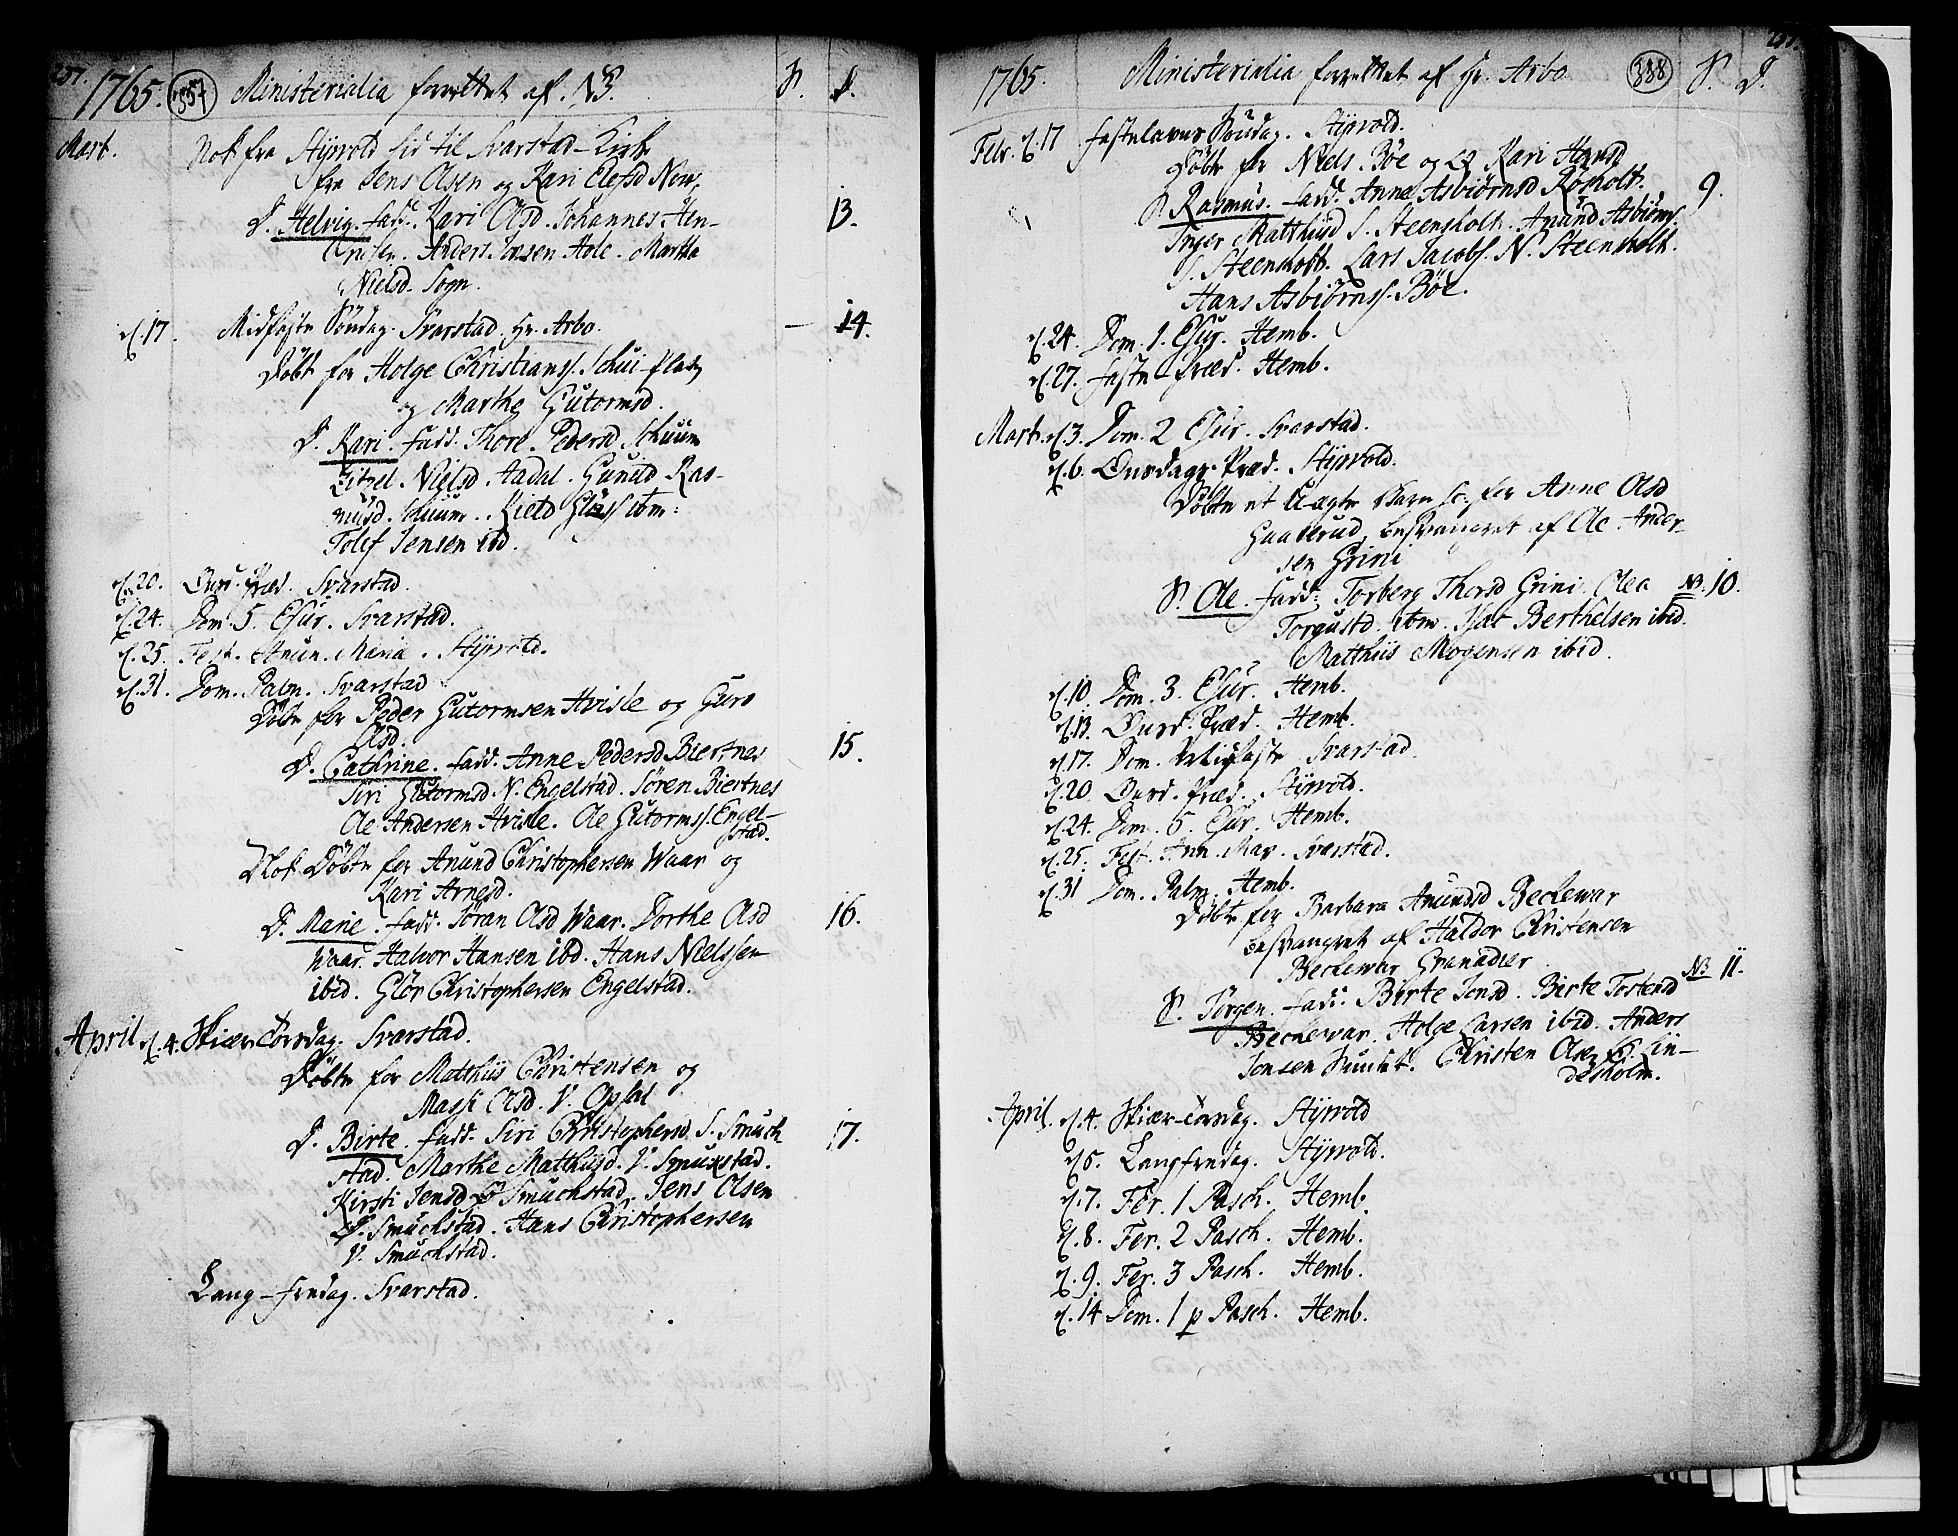 257.
1765. 357 Ministerialia forrettet af NB. S. D.
Mart. Nok fra Styrvold hid til Svarstad-Kirke
fra Jens Olsen og Kari Elefsd
D. Helvig. fadd. Kari Olsd. Johannes Hen- 13.
Anders Jonsen Hole. Martha
Nielsd. Sogn.
d. 17. Midfaste Søndag. Svarstad. Hr. Arbo. — 14.
Døbt for Holge Christianss. Schui-plads
og Marthe Gutormsd.
D. Kari. fadd. Thore Pedersd. Schuum
Nielsd. Aadal. Gunild Ras-
musd. Schuum. Kield ibm:
Tolef Jensen ibd.
d. 20. Onsd. Præd. Svarstad.
d. 24. Dom. 5. Qvr. Svarstad.
d. 25. Fest. Anun. Maria. Styrvold.
d. 31. Dom. Palm. Svarstad
Døbt for Peder Gutormsen Hvisle og Guro
Olsd.
D. Cathrine. fadd. Anne Pedersd Biertnes 15.
Siri Gutormsd N. Engelstad. Søren Biertnes
Ole Andersen Hvisle. Ole Gutormss. Engel-
stad.
Nok Døbt for Anund Christophersen Waar og
Kari Arnesd.
D. Marie. fadd. Jøran Olsd Waar. Dorthe Olsd 16.
Waar. Halvor Hansen ibd. Hans Nielssen
ibid. Glør Christophersen Engelstad.
April d. 4. Skiær-Torsdag. Svarstad.
Døbt for Matthiis Christensen og
Massi Olsd. V. Opsal
D. Birte. fadd. Siri Christophersd. S. Smuck- 17.
stad. Marthe Matthiisd. V. Smuckstad.
Kirsti Jensd Ø Smuckstad. Jens Olsen
Ø. Smuckstad. Hans Christophersen
V. Smuckstad.
Lang-fredag. Svarstad.
257.
1765. Ministerialia forrettet af Hr. Arbo 338 S. D.
Febr. d. 17 fastelavns Søndag. Styrvold.
Døbt for Niels Bøe og Kari Hansd
S. Rasmus. fadd. Anne Asbiørnsd Røsholt. 9.
Inger Matthiisd S. Steensholt. Anund Asbiørns.
S. Steensholt. Lars Jacobs. N. Steensholt.
Hans Asbiørnss. Bøe.
d. 24. Dom. 1. Qvr. Hemb.
d. 27. faste-Præd. Hemb.
Mart. d. 3. Dom. 2 Qvr. Svarstad.
d. 6. Onsdags-Præd. Styrvold.
Døbt et Uægte Barn for Anne Olsd
Gaaserud, besvangret af Ole Ander-
sen Grini
S. Ole. fadd: Torberg Thorsd Grini. Olea NB. 10.
Torgusd. ibm. Isac Berthelsen ibid.
Matthiis Mogensen ibid.
d. 10. Dom. 3. Qvr. Hemb.
d. 13. Onsd. Præd. Hemb.
d. 17. Dom. Midfaste Svarstad.
d. 20. Onsd. Præd. Styrvold.
d. 24. Dom. 5. Qvr. Hemb.
d. 25. Fest. Ann. Mar. Svarstad.
d. 31 Dom. Palm. Hemb.
Døbt for Barbara Anundsd Beckewar
besvangret af Haldor Christensen
Beckewar Granadier.
S. Jørgen. fadd. Birte Jonsd. Birte Tostensd NB 11.
Beckewar. Holge Larsen ibid. Anders
Jonsen Christen Olsen Lin-
desholm.
April. d. 4. Skiær-Torsdag. Styrvold
d. 5. Langfredag. Styrvold.
d. 7. Fer. 1 Pasch. Hemb.
d. 8. Fer. 2 Pasch. Hemb.
d. 9. Fer. 3 Pasch. Hemb.
d. 14 Dom. 1 p Pasch. Hemb.